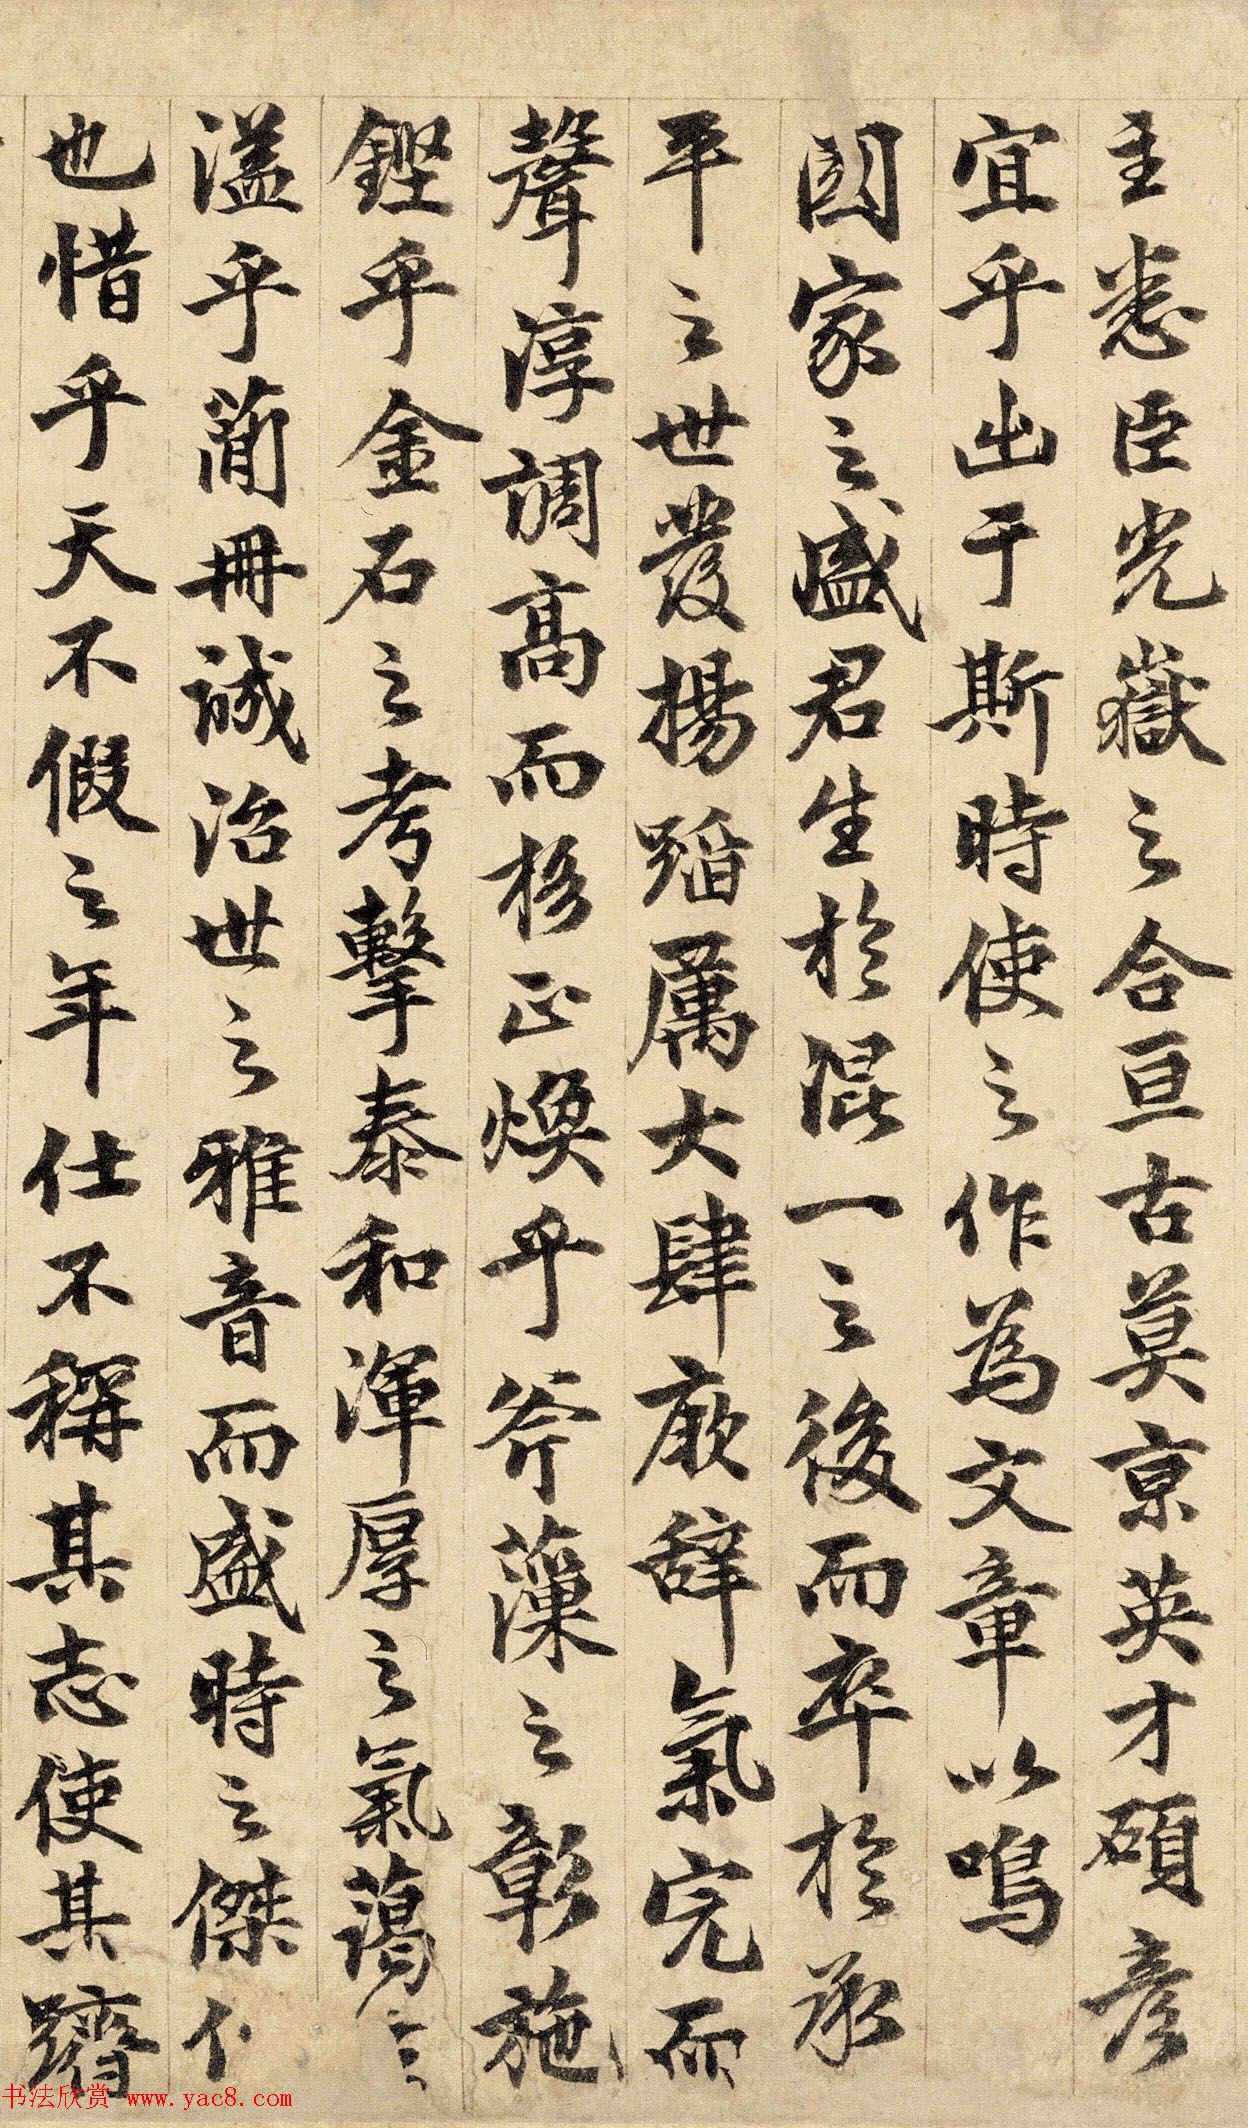 主悉臣光嶽之合亘古莫京英才碩彦
宜乎出于斯時使之作為文章以鳴
國家之盛君生於混一之後而卒於承
平之世發揚蹈厲大肆厥辞氣完而
聲淳調高而格正煥乎斧藻之彰施
鏗乎金石之考擊泰和渾厚之氣藹〻
溢乎簡冊誠治世之雅音而盛時之傑作
也惜乎天不假之年仕不稱其志使其躋
书法欣赏 www.yac8.com